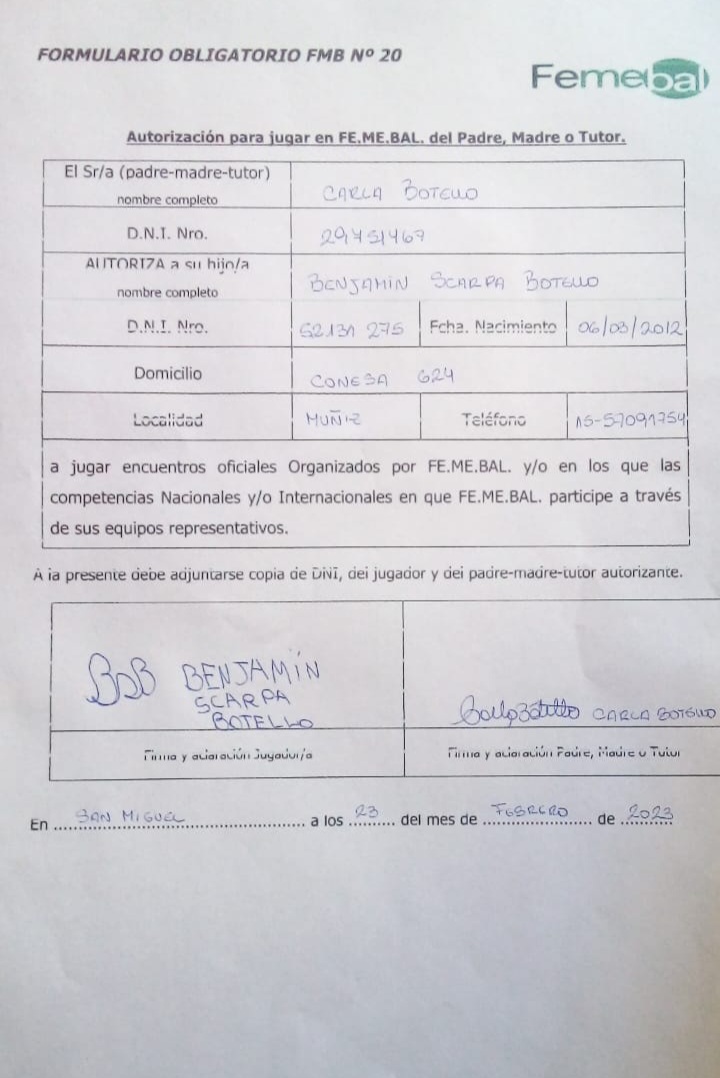 FORMULARIO OBLIGATORIO FMB Nº 20
Femebal
Autorización para jugar en FE.ME.BAL. del Padre, Madre o Tutor.
El Sr/a (padre-madre-tutor)
nombre completo
CARLA BOTELLO
D.N.I. Nro.
29,451467
AUTORIZA a su hijo/a
nombre completo
BENJAMIN SCARPA BOTELLO
D.N.I. Nro.
52.131 275
Fcha. Nacimiento
06/03/2012
Domicilio
CONESA 624
Localidad
MUÑIZ
Teléfono
15-57091754
a jugar encuentros oficiales Organizados por FE.ME.BAL. y/o en los que las
competencias Nacionales y/o Internacionales en que FE.ME.BAL. participe a través
de sus equipos representativos.
A la presente debe adjuntarse copia de DNI, del jugador y del padre-madre-tutor autorizante.
BENJAMÍN
SCARPA
BOTELLO
Carla Botello CARLA BOTELLO
Firma y aclaración Jugador/a
Firma y aclaración Padre, Madre o Tutor
En SAN MIGUEL a los 23 del mes de FEBRERO de 2023